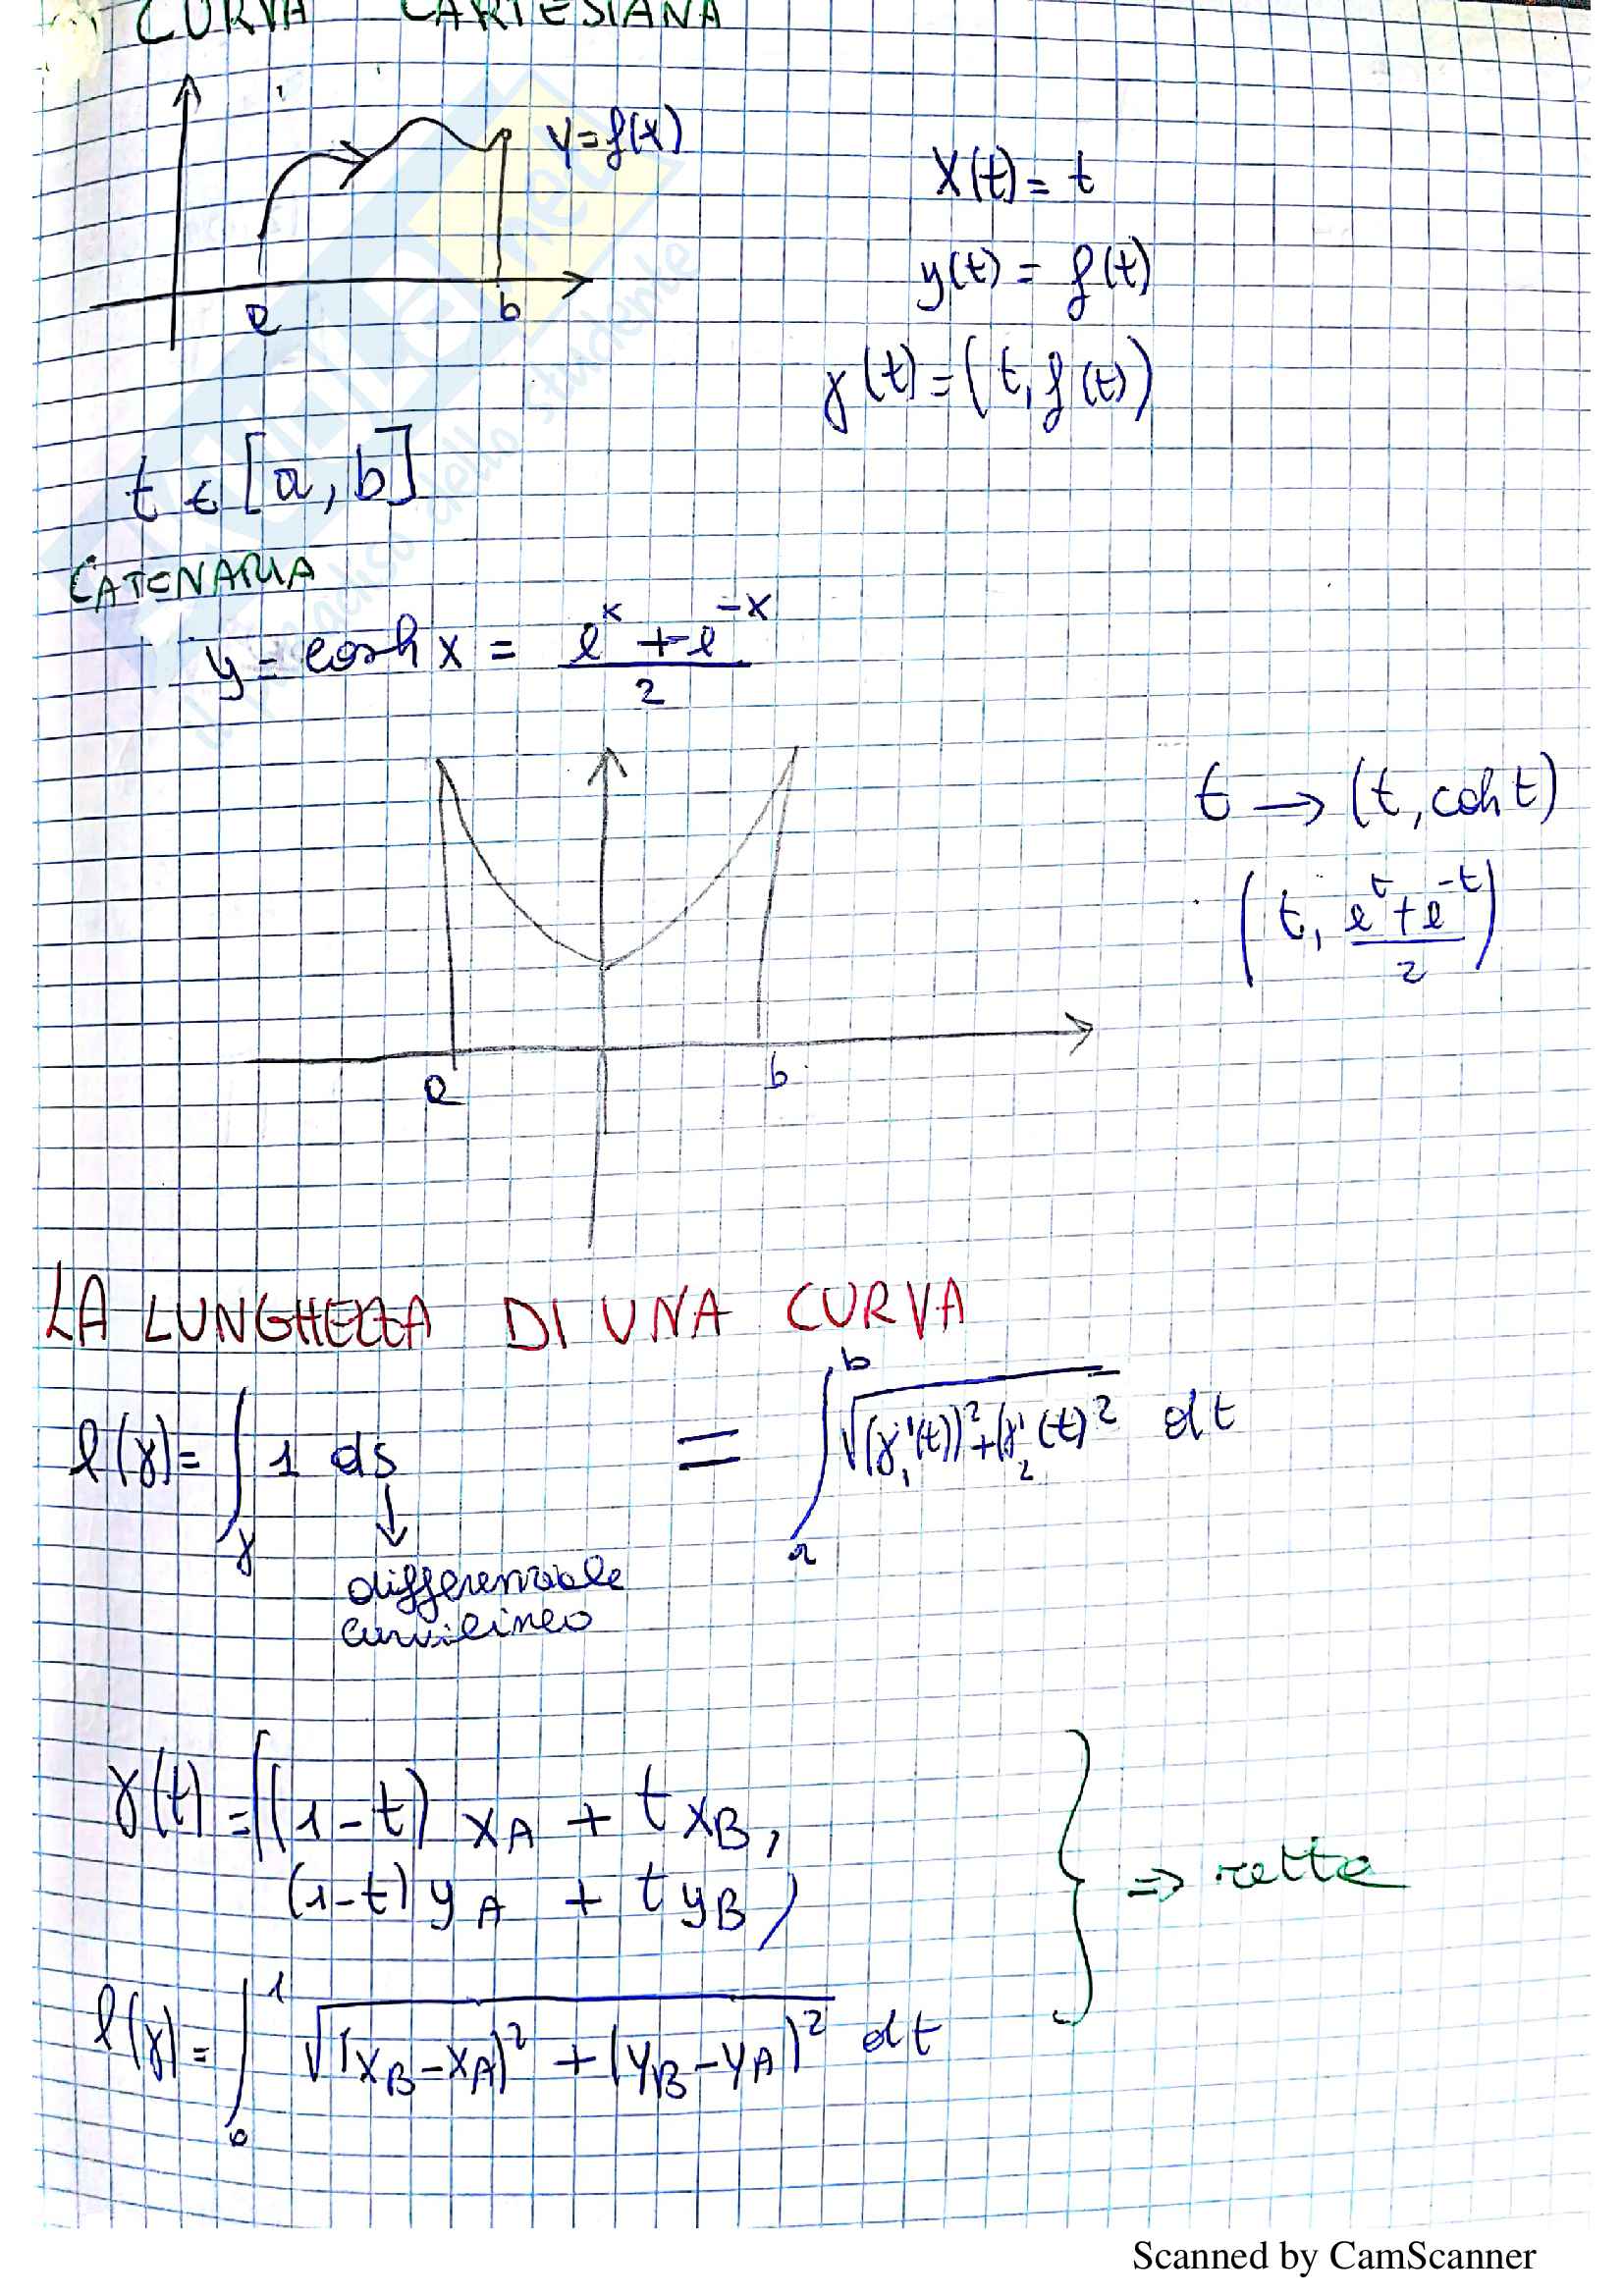 CURVA CARTESIANA
y=f(x)
x(t)=t
y(t)=f(t)
a b
γ(t)=(t,f(t))
t ∈ [a,b]
CATENARIA
y = cosh x = (e^x + e^-x)/2
t → (t, coh t)
(t, (e^t+e^-t)/2)
a b
LA LUNGHEZZA DI UNA CURVA
l(γ)= ∫_γ 1 ds = ∫_a^b √((γ₁'(t))²+(γ₂'(t)² dt
↓
curvilineo
γ(t)=((1-t) x_A + t x_B,
(1-t) y_A + t y_B)
⇒ retta
l(γ)= ∫_0^1 √((x_B-x_A)² + (y_B-y_A)²) dt
Scanned by CamScanner